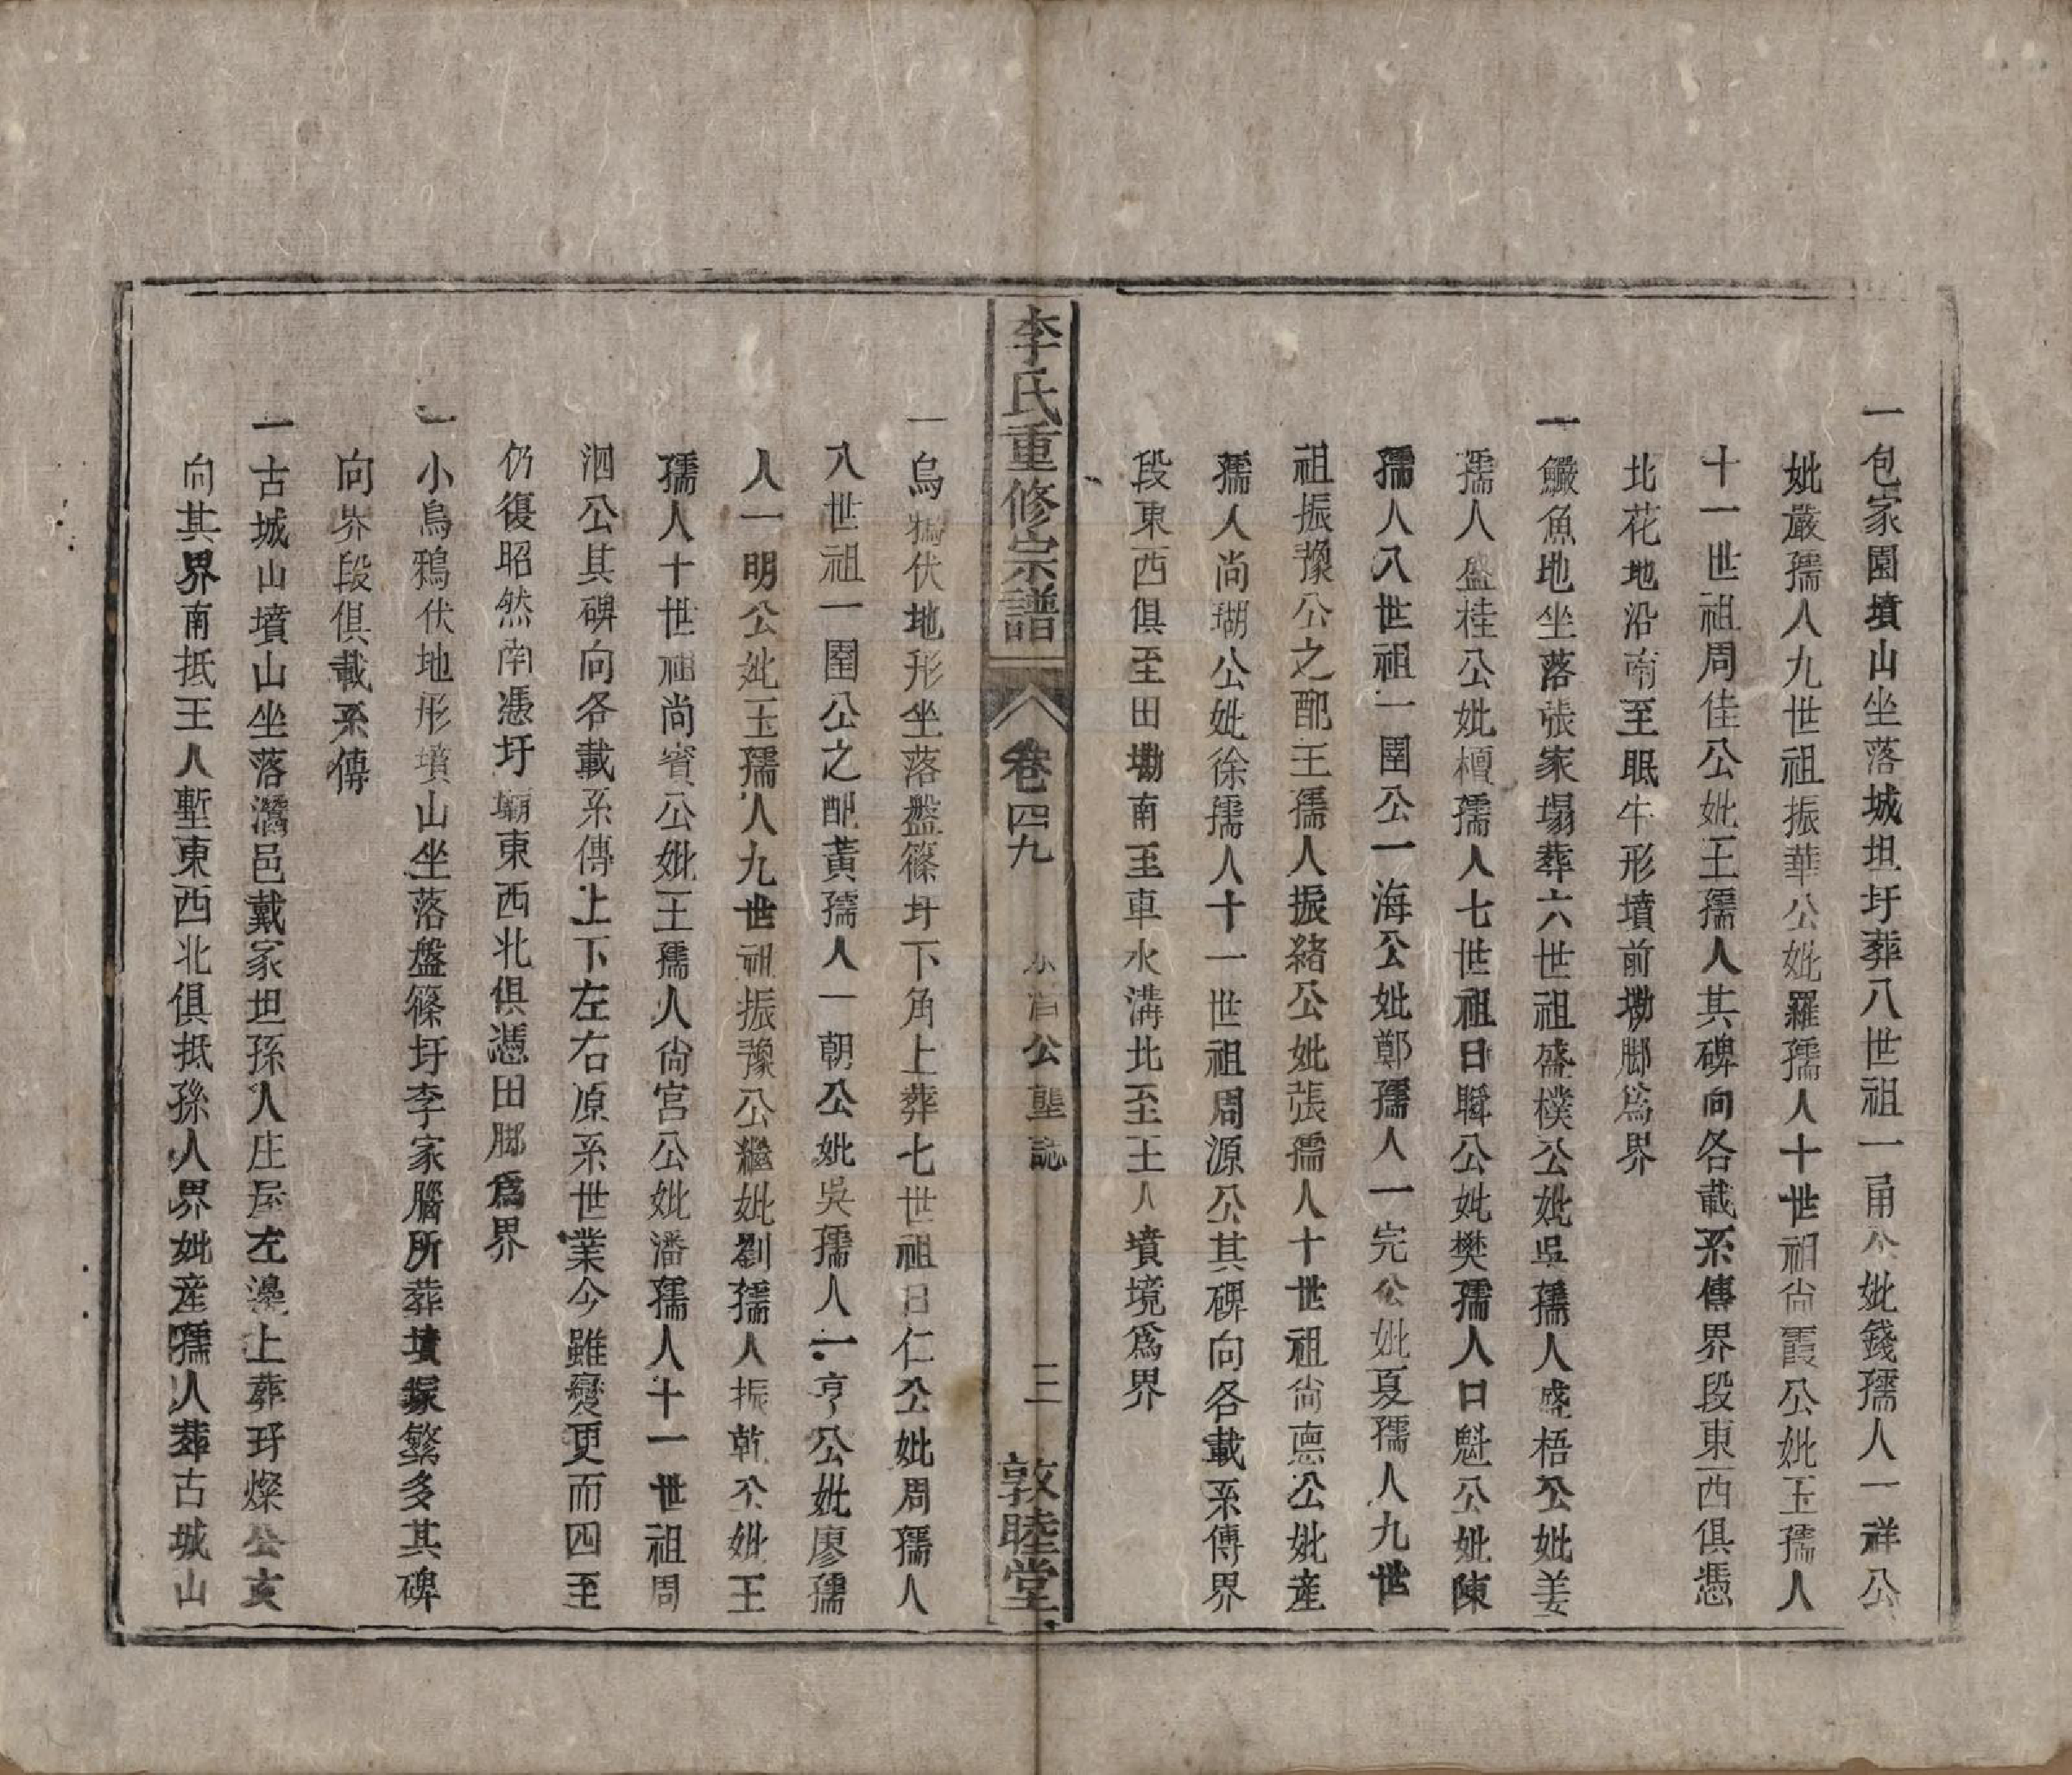 一包家園墳山坐落城坦圩葬八世祖一甬公妣錢孺人一祥公
妣嚴孺人九世祖振華公妣羅孺人十世祖尙霞公妣王孺人
十一世祖周佳公妣王孺人其碑向各載系傳界段東西俱憑
北花地沿南至眠牛形墳前墈脚爲界
一鱖魚地坐落張家塌葬六世祖盛樸公妣吳孺人盛梧公妣姜
孺人盛桂公妣檀孺人七世祖日聯公妣樊孺人日魁公妣陳
孺人八世祖一圍公一海公妣鄭孺人一完公妣夏孺人九世
祖振豫公之配王孺人振緒公妣張孺人十世祖尙惪公妣産
孺人尚瑚公妣徐孺人十一世祖周源公其碑向各載系傳界
段東西俱至田墈南至車水溝北至王人墳境爲界
李氏重修宗譜
卷四九
公塋誌
三
敦睦堂
一烏鴉伏地形坐落盤篠圩下角上葬七世祖日仁公妣周孺人
八世祖一圍公之配黃孺人一朝公妣吳孺人一亨公妣廖孺
人一明公妣王孺人九世祖振豫公繼妣劉孺人振乾公妣王
孺人十世祖尚賓公妣王孺人尙宮公妣潘孺人十一世祖周
泗公其碑向各載系傳上下左右原系世業今雖變更而四至
仍復昭然南憑圩塥東西北俱憑田脚爲界
一小烏鴉伏地形墳山坐落盤篠圩李家腦所葬墳塚繁多其碑
向界段俱載系傳
一古城山墳山坐落灊邑戴家坦孫人庄屋左邊上葬玗燦公亥
向其界南抵王人塹東西北俱抵孫人界妣産孺人葬古城山